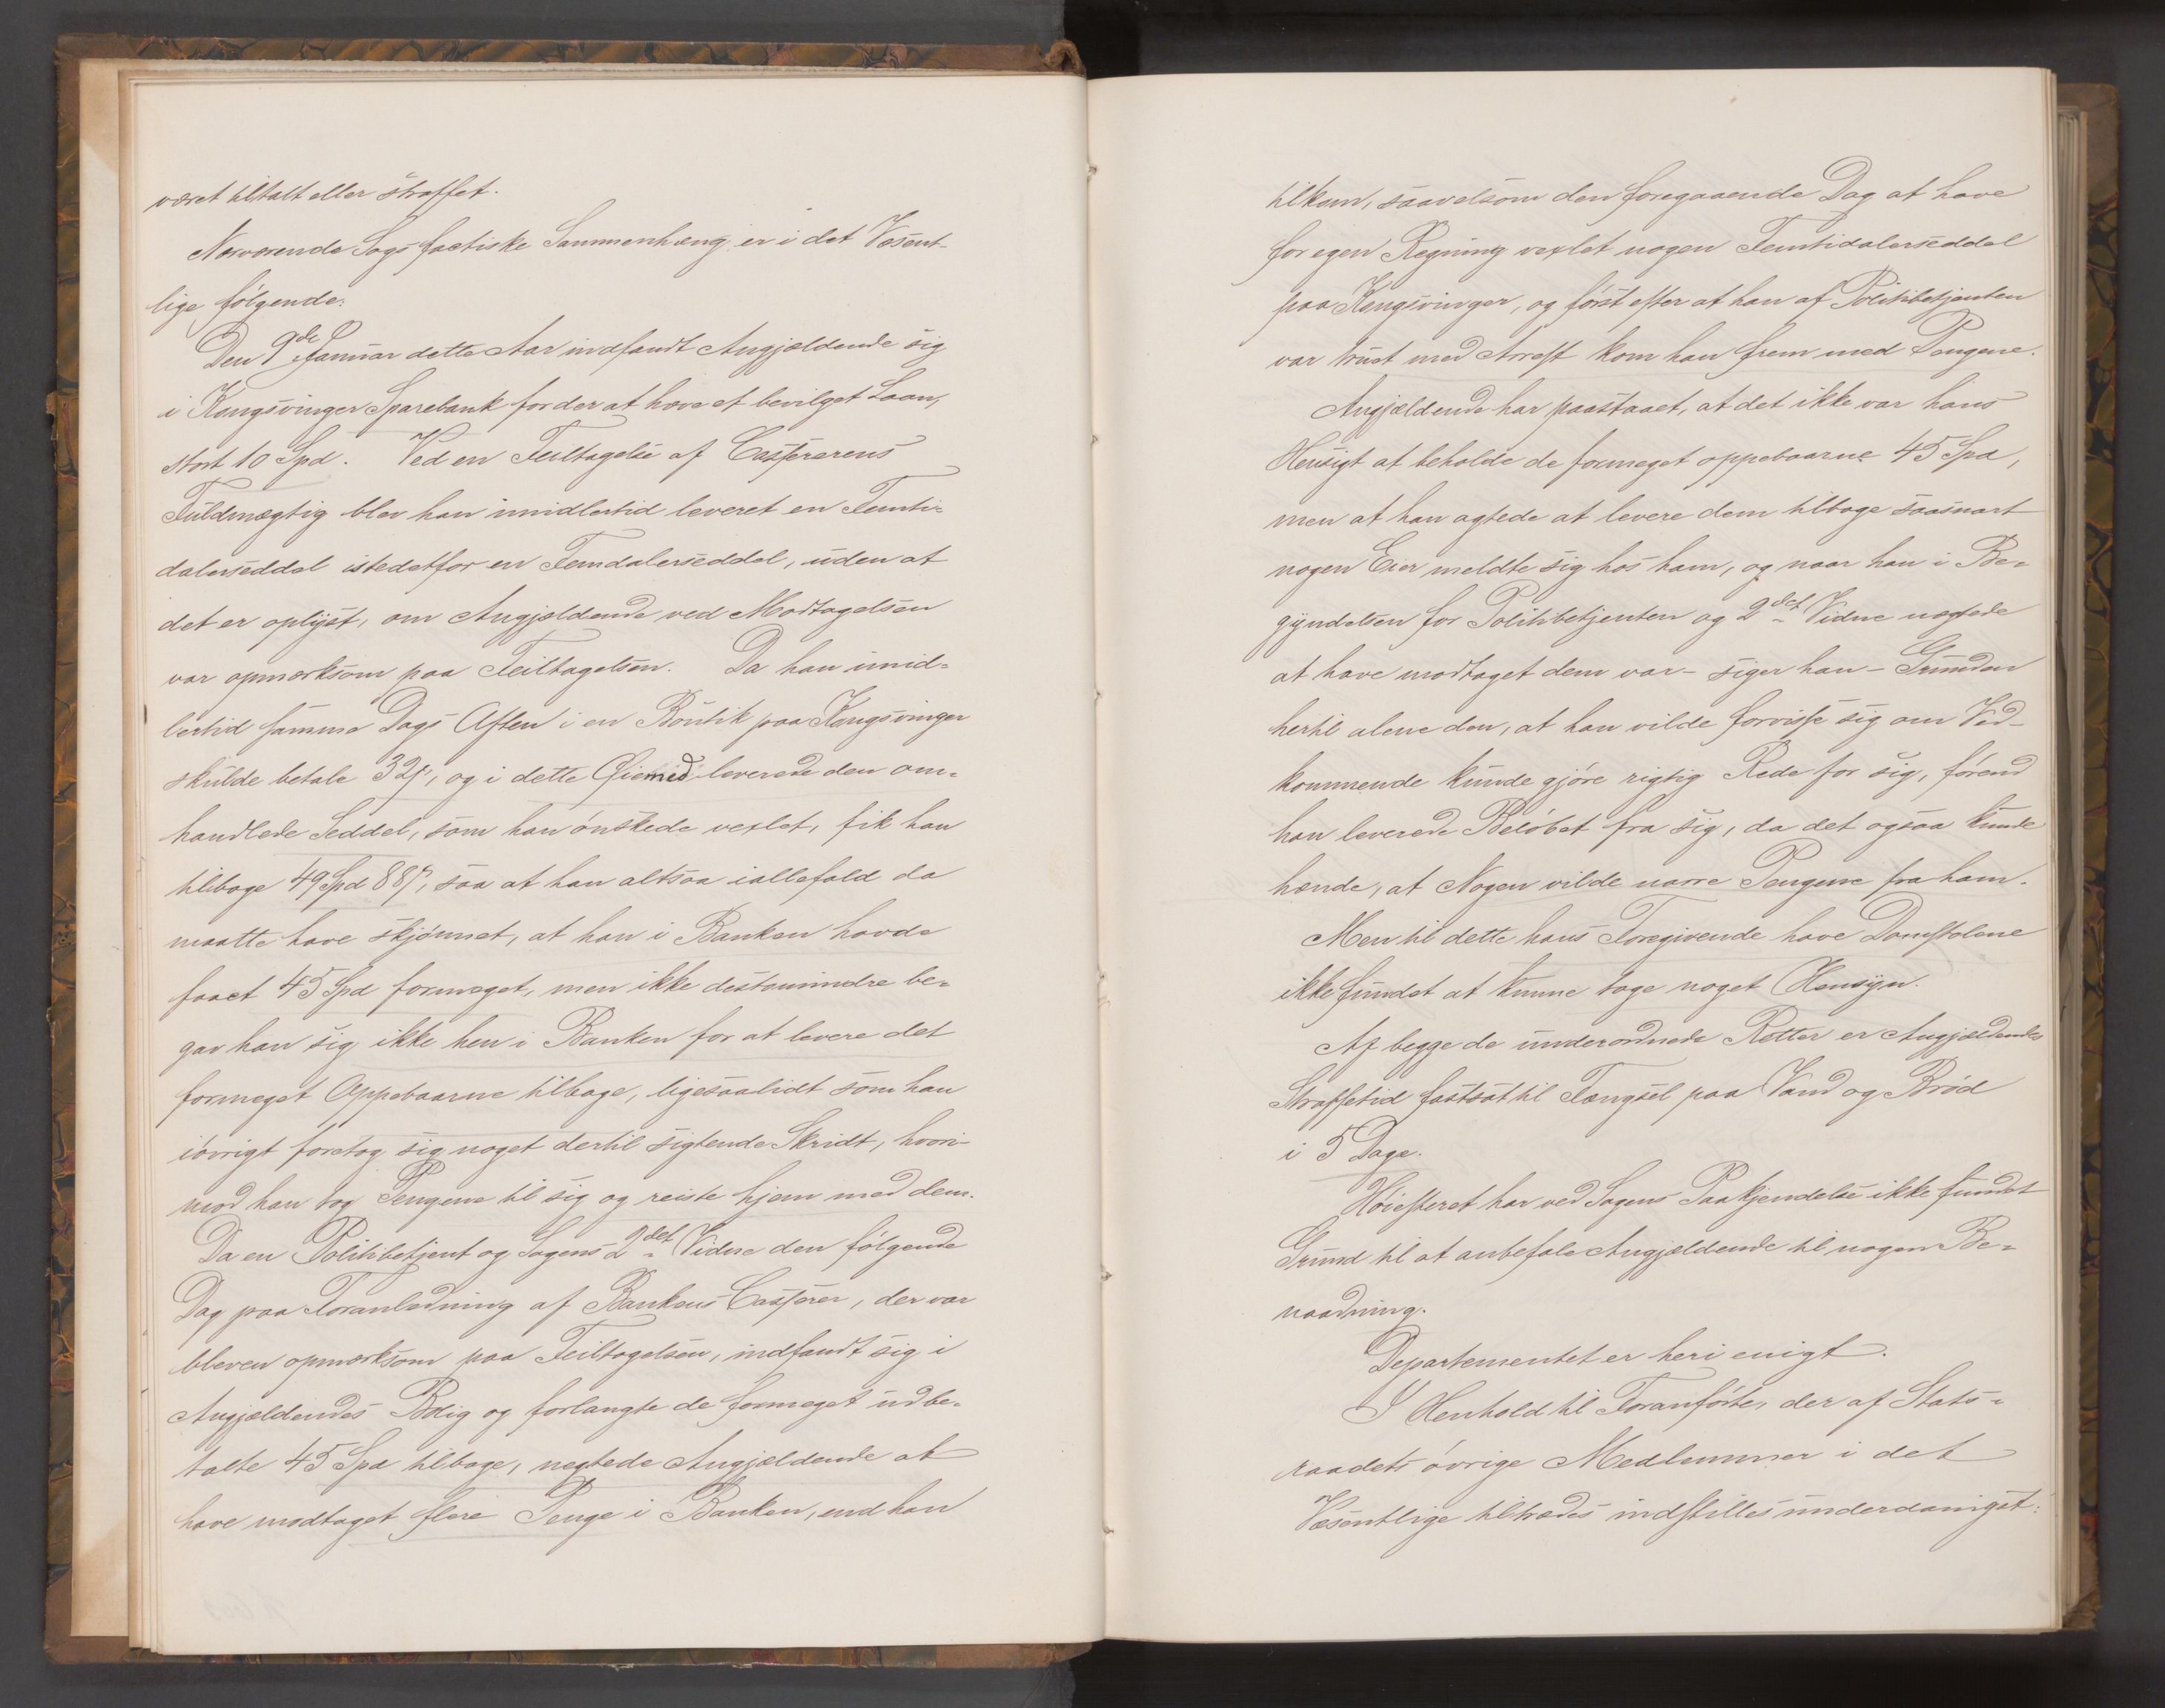 været tiltalt eller straffet.
Nærværende Sags factiske Sammenhæng er i det Væsent-
lige følgende:
Den 9de Januar dette Aar indfandt Angjældende sig
i Kongsvinger Sparebank for der at hæve et bevilget Laan,
stort 10 Spd. Ved en Feiltagelse af Casserens
Fuldmægtig blev han imidlertid leveret en Femti-
dalerseddel istedetfor en Femdalerseddel, uden at
det er oplyst, om Angjældende ved Modtagelsen
var opmærksom paa Feiltagelsen. Da han imid-
lertid samme Dags Aften i en Boutik paa Kongsvinger
skulde betale 32 ß, og i dette Øiemed leverede den om-
handlede Seddel, som han ønskede vexlet, fik han
tilbage 49 Spd 88 ß, saa at han altsaa iallefald da
maatte have skjønnet, at han i Banken havde
faaet 45 Spd formeget, men ikke destomindre be-
gav han sig ikke hen i Banken for at levere det
formeget Oppebaarne tilbage, ligesaalidt som han
iøvrigt foretog sig noget dertil sigtende Skridt, hvori-
mod han tog Pengene til sig og reiste hjem med dem.
Da en Politibetjent og Sagens 2det Vidne den følgende
Dag paa Foranledning af Bankens Casserer, der var
bleven opmærksom paa Feiltagelsen, indfandt sig i
Angjældendes Bolig og forlangte de formeget udbe-
talte 45 Spd tilbage, negtede Angjældende at
have modtaget flere Penge i Banken, end han
tilkom, saavelsom den foregaaende Dag at have
for egen Regning vexlet nogen Femtidalerseddel
paa Kongsvinger, og først efter at han af Politibetjenten
var truet med Arrest kom han frem med Pengene.
Angjældende har paastaaet, at det ikke var hans
Hensigt at beholde de formeget oppebaarne 45 Spd,
men at han agtede at levere dem tilbage saasnart
nogen Eier meldte sig hos ham, og naar han i Be-
gyndelsen for Politibetjenten og 2det Vidne nægtede
at have modtaget dem var - siger han - Grunden
hertil alene den, at han vilde forvisse sig om Ved-
kommende kunde gjøre rigtig Rede for sig, førend
han leverede Beløbet fra sig, da det ogsaa kunde
hænde, at Nogen vilde narre Pengene fra ham.
Men til dette hans Foregivende have Domstolene
ikke fundet at kunne tage noget Hensyn.
Af begge de underordnede Retter er Angjældendes
Straffetid fastsat til Fængsel paa Vand og Brød
i 5 Dage.
Høiesteret har ved Sagens Paakjendelse ikke fundet
Grund til at anbefale Angjældende til nogen Be-
naadning.
Departementet er heri enigt.
I Henhold til Foranførte, der af Stats-
raadets øvrige Medlemmer i det
Væsentlige tiltrædes indstilles underdanigst: